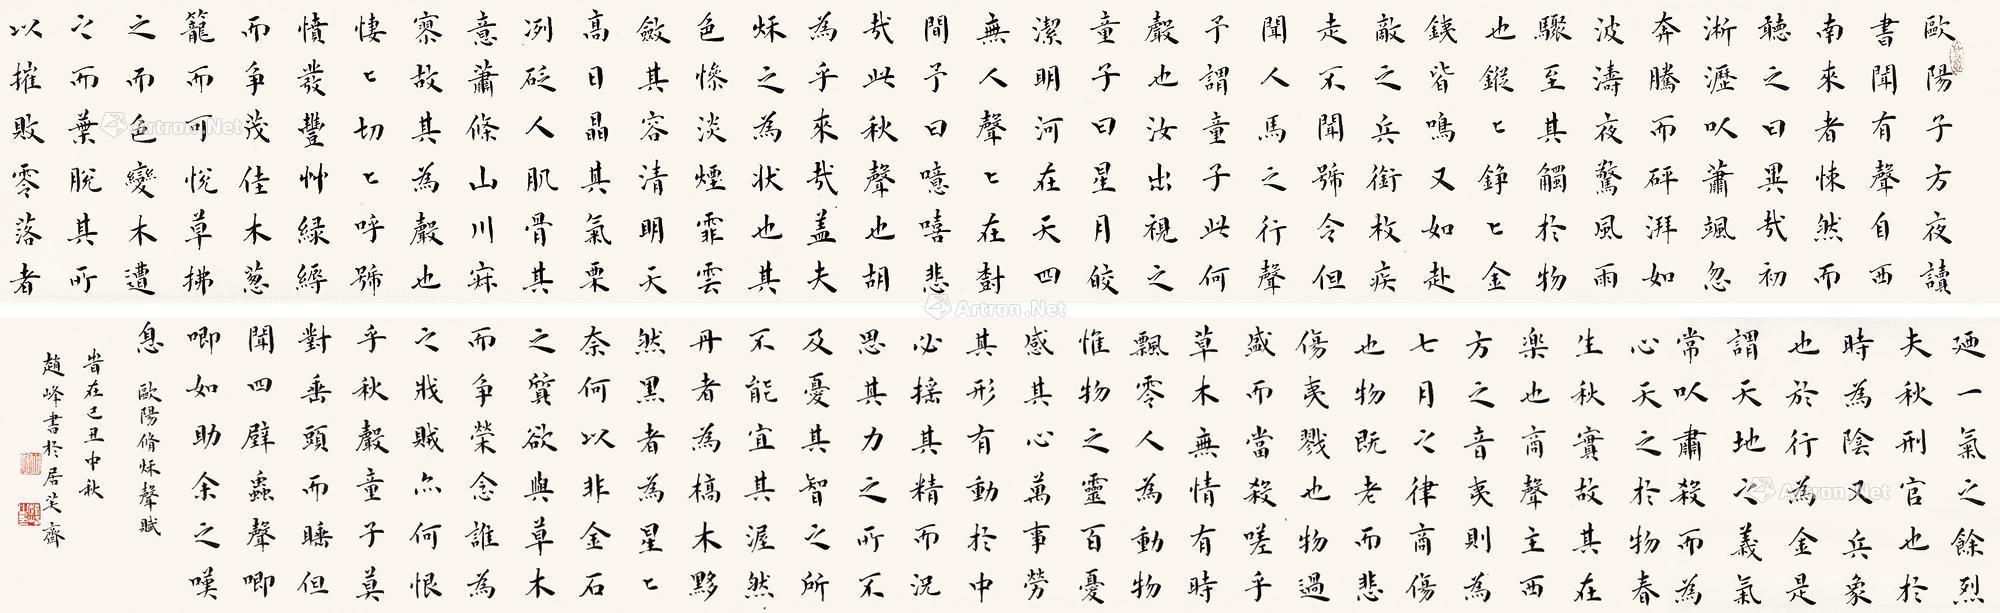 歐陽子方夜讀
書聞有聲自西
南來者悚然而
聽之曰異哉初
淅瀝以蕭颯忽
奔騰而砰湃如
波濤夜驚風雨
驟至其觸於物
也鏦〻錚〻金
鐵皆鳴又如赴
敵之兵銜枚疾
走不聞號令但
聞人馬之行聲
予謂童子此何
聲也汝出視之
童子曰星月皎
潔明河在天四
無人聲〻在樹
間予曰噫嘻悲
哉此秋聲也胡
為乎來哉蓋夫
秌之為狀也其
色慘淡煙霏雲
斂其容清明天
高日晶其氣栗
冽砭人肌骨其
意蕭條山川寂
寥故其為聲也
悽〻切〻呼號
憤發豐艸綠縟
而爭茂佳木蔥
籠而可悅草拂
之而色變木遭
之而葉脫其所
以摧敗零落者
迺一氣之餘烈
夫秋刑官也於
時為陰又兵象
也於行為金是
謂天地之義氣
常以肅殺而為
心天之於物春
生秋實故其在
樂也商聲主西
方之音夷則為
七月之律商傷
也物既老而悲
傷夷戮也物過
盛而當殺嗟乎
草木無情有時
飄零人為動物
惟物之靈百憂
感其心萬事勞
其形有動於中
必搖其精而況
思其力之所不
及憂其智之所
不能宜其渥然
丹者為槁木黟
然黑者為星〻
奈何以非金石
之質欲與草木
而爭榮念誰為
之戕賊亦何恨
乎秋聲童子莫
對垂頭而睡但
聞四壁蟲聲唧
唧如助余之嘆
息 歐陽脩秌聲賦
旹在己丑中秋
趙峰書於居 齋
Artron.Net
Artron.Net
Artron.Net
Artron.Net